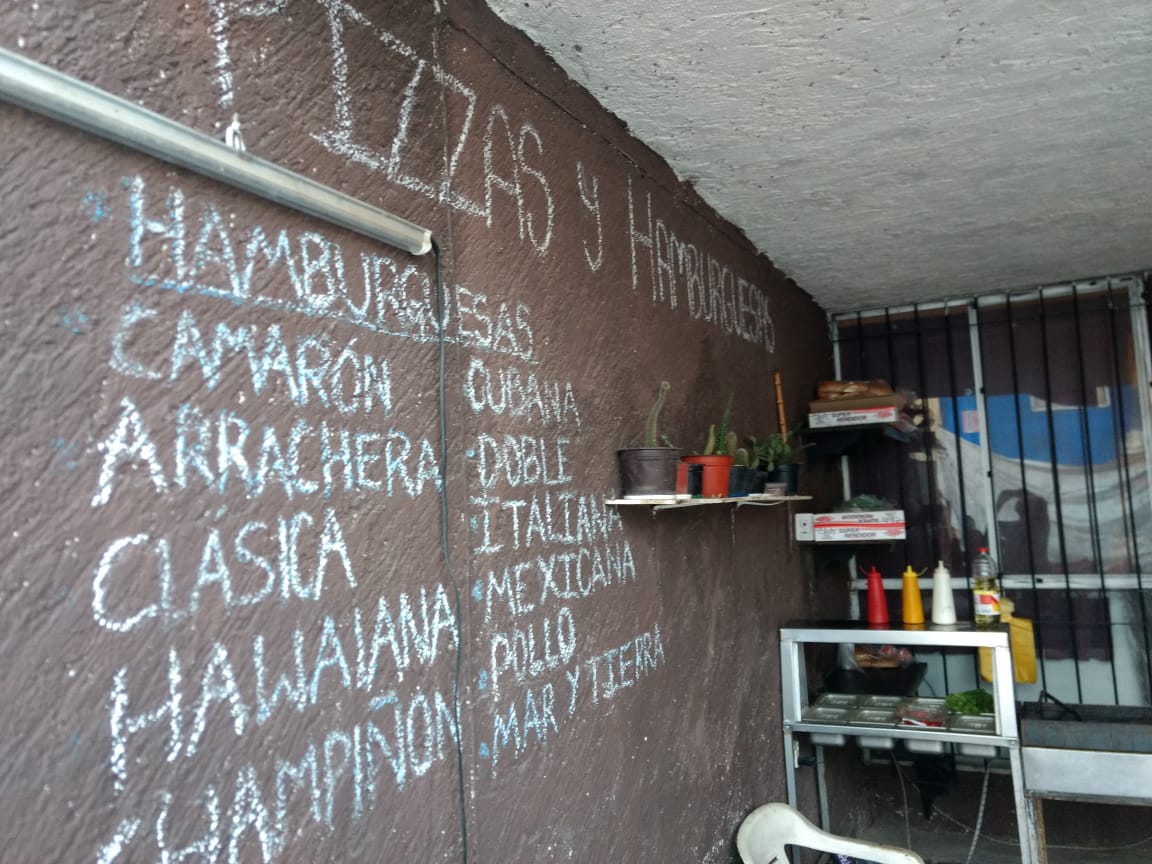 PIZZAS y HAMBURGUESAS
HAMBURGUESAS
CAMARÓN
ARRACHERA
CLÁSICA
HAWAIANA
CHAMPIÑON
CUBANA
DOBLE
ITALIANA
MEXICANA
POLLO
MAR Y TIERRA
SUPER
RENDIDOR
SUPER
RENDIDOR